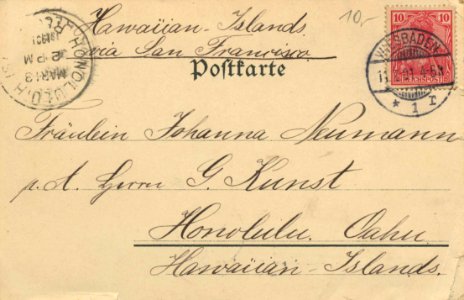 Hawaiian-Islands.
via San Francisco.
10,-
Postkarte
HONOLULU, H.
MAR 13
2 PM
1901
10 10
WIESBADEN
1 r
Fräulein Johanna Neumann
p. A. Herrn G. Kunst
Honolulu. Oahu
Hawaiian-Islands.